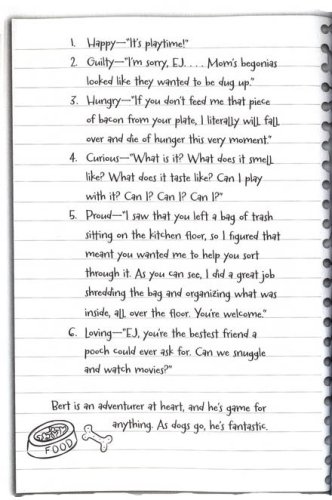 1. Happy—"It's playtime!"
2. Guilty—"I'm sorry, EJ. . . . Mom's begonias
looked like they wanted to be dug up."
3. Hungry—"If you don't feed me that piece
of bacon from your plate, I literally will fall
over and die of hunger this very moment."
4. Curious—"What is it? What does it smell
like? What does it taste like? Can I play
with it? Can I? Can I? Can I?"
5. Proud—"I saw that you left a bag of trash
sitting on the kitchen floor, so I figured that
meant you wanted me to help you sort
through it. As you can see, I did a great job
shredding the bag and organizing what was
inside, all over the floor. You're welcome."
6. Loving—"EJ, you're the bestest friend a
pooch could ever ask for. Can we snuggle
and watch movies?"
Bert is an adventurer at heart, and he's game for
anything. As dogs go, he's fantastic.
FOOD